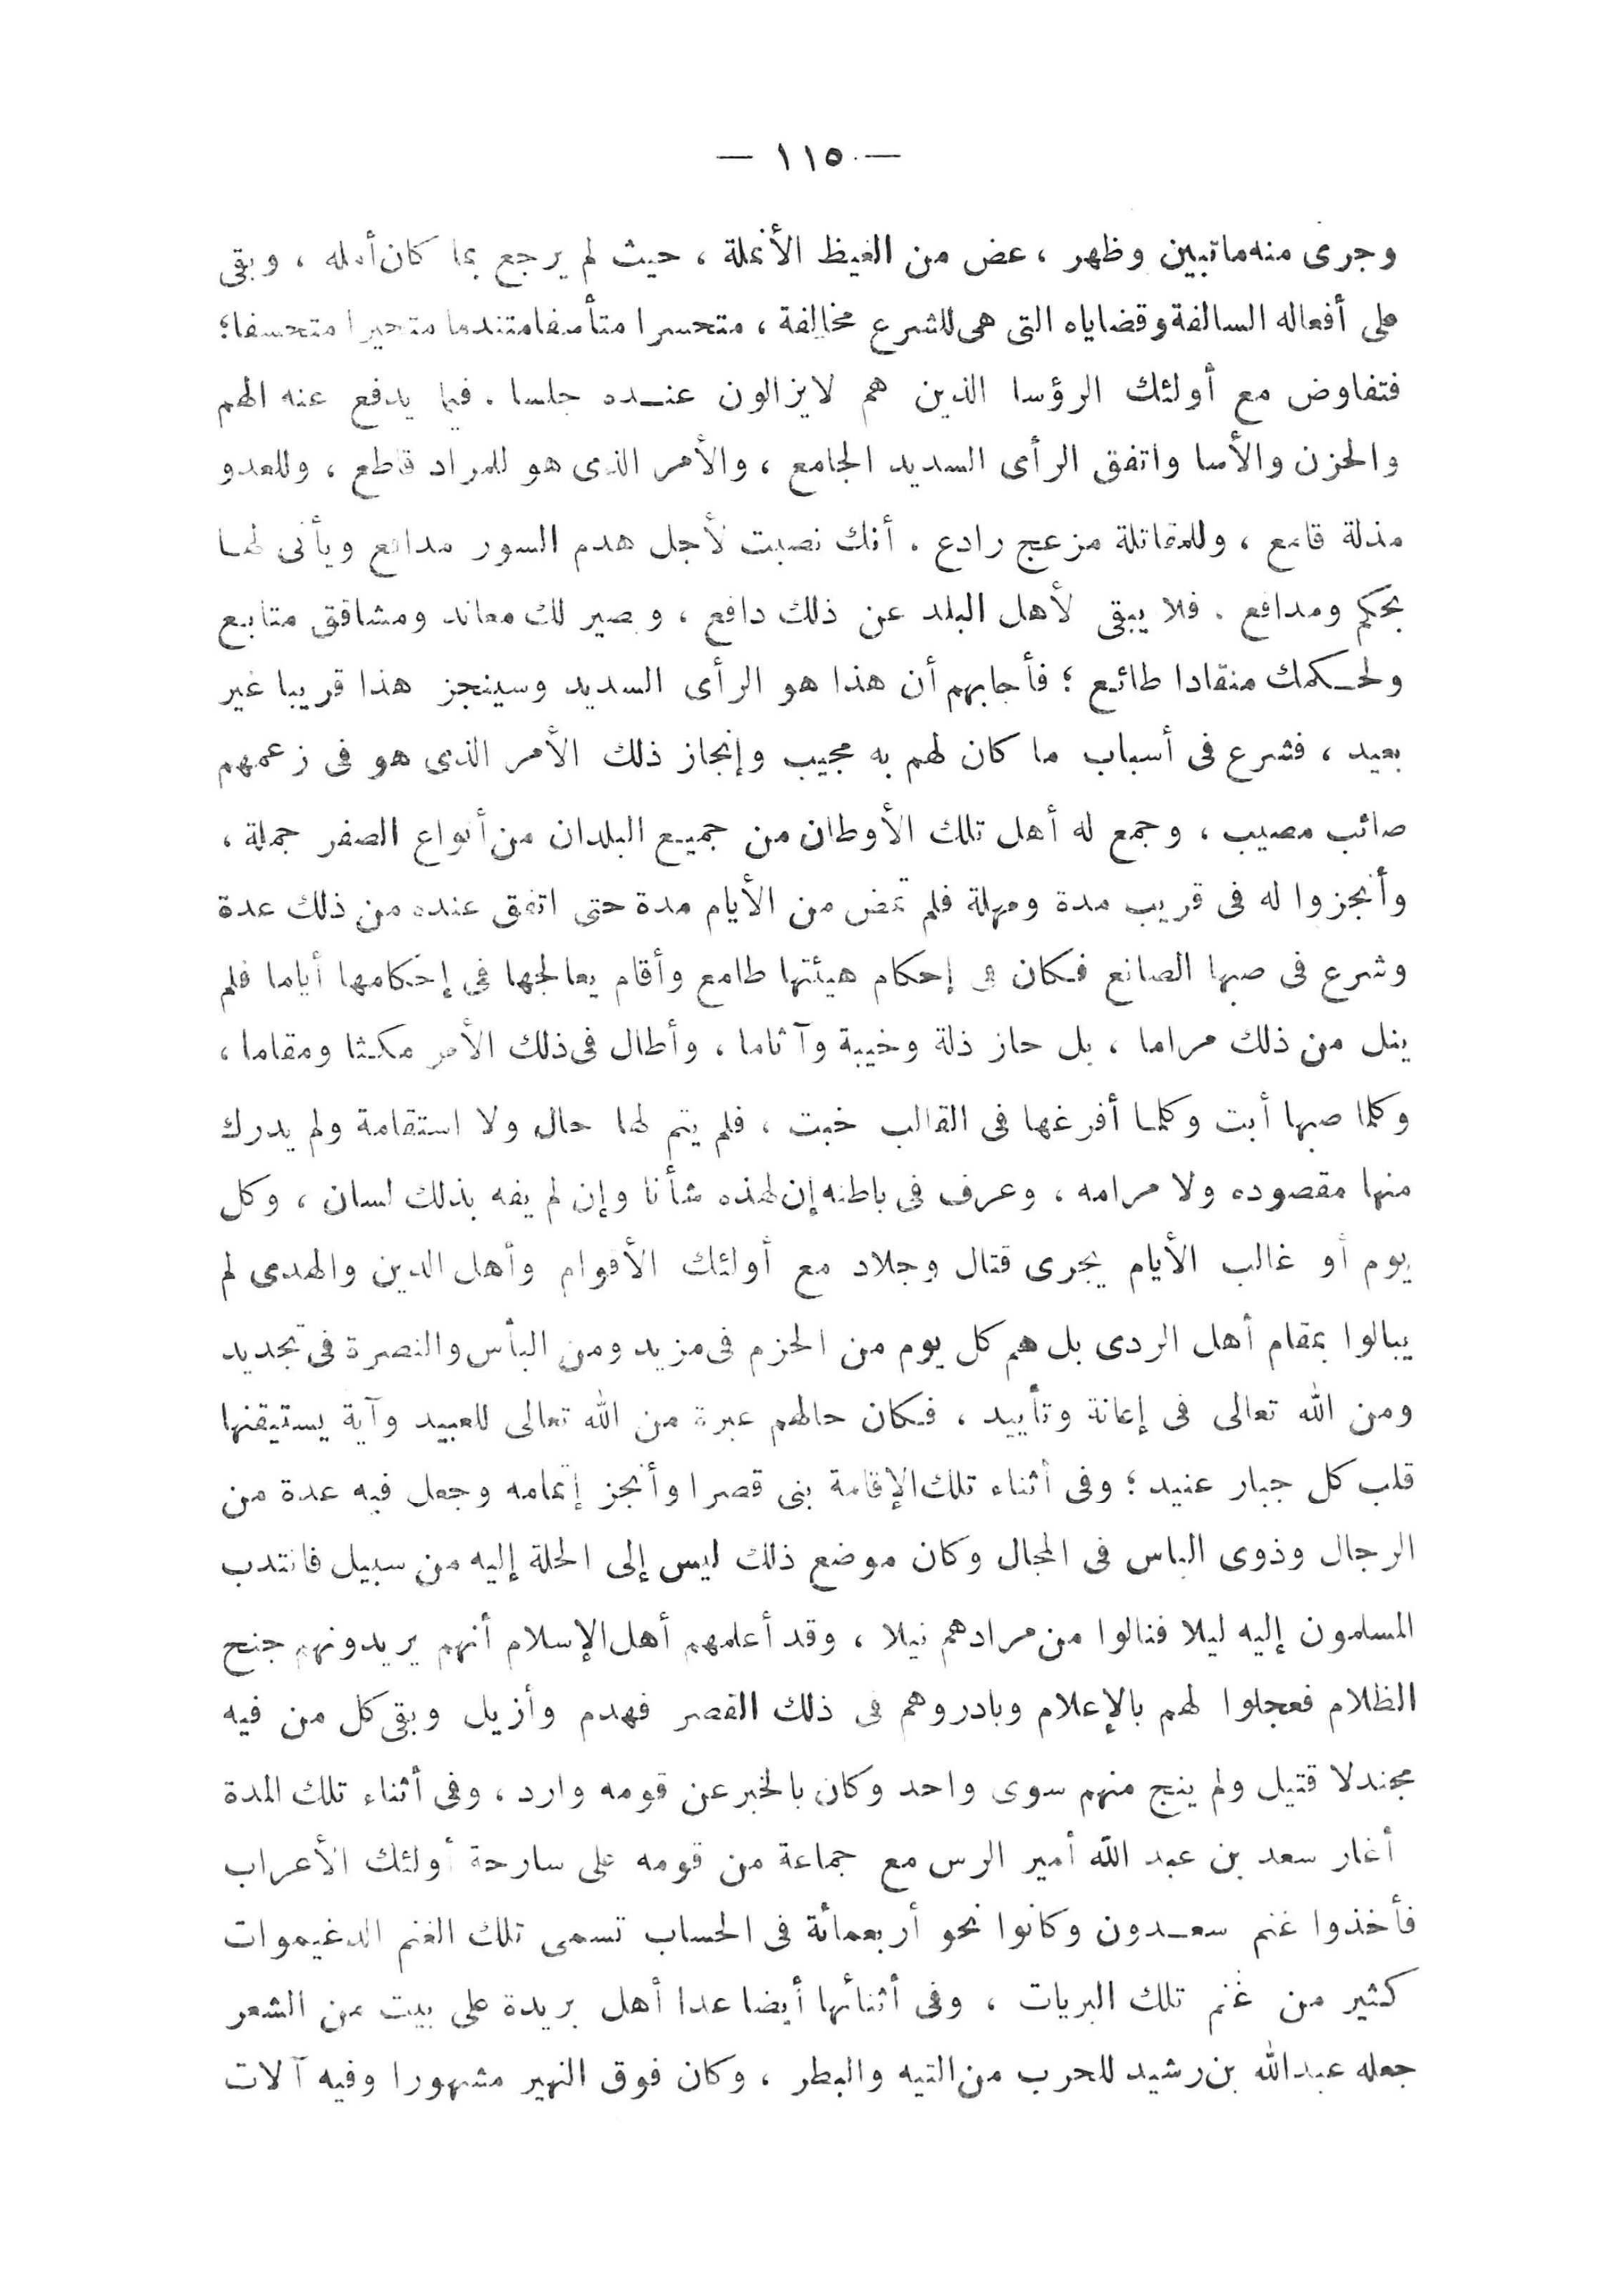 — ١١٥ —
وجرى منه ماتبين وظهر ، عض من الغيظ الأنملة ، حيث لم يرجع بما كان أمله ، وبقى
على أفعاله السالفة وقضاياه التى هى للشرع مخالفة ، متحسرا متأسفا متندما متحيرا متحسفا؛
فتفاوض مع أولئك الرؤسا الذين هم لايزالون عنـده جلسا . فيما يدفع عنه الهم
والحزن والأسا واتفق الرأى السديد الجامع ، والأمر الذى هو للمراد قاطع ، وللعدو
مذلة قامع ، وللمقاتلة مزعج رادع . أنك نصبت لأجل هدم السور مدافع ويأتى لهـا
بحكم ومدافع . فلا يبقى لأهل البلد عن ذلك دافع ، وصير لك معاند ومشاقق متابع
ولحـكمك منقادا طائع ؛ فأجابهم أن هذا هو الرأى السديد وسينجز هذا قريبا غير
بعيد ، فشرع فى أسباب ما كان لهم به مجيب وإنجاز ذلك الأمر الذى هو فى زعمهم
صائب مصيب ، وجمع له أهل تلك الأوطان من جميع البلدان من أنواع الصفر جملة ،
وأنجزوا له فى قريب مدة ومهلة فلم تمض من الأيام مدة حتى اتفق عنده من ذلك عدة
وشرع فى صبها الصانع فكان فى إحكام هيئتها طامع وأقام يعالجها فى إحكامها أياما فلم
ينل من ذلك مراما ، بل حاز ذلة وخيبة وآثاما ، وأطال فى ذلك الأمر مكثا ومقاما ،
وكلما صبها أبت وكلمـا أفرغها فى القالب خبت ، فلم يتم لها حال ولا استقامة ولم يدرك
منها مقصوده ولا مرامه ، وعرف فى باطنه إن لهذه شأنا وإن لم يفه بذلك لسان ، وكل
يوم أو غالب الأيام يجرى قتال وجلاد مع أولئك الأقوام وأهل الدين والهدى لم
يبالوا بمقام أهل الردى بل هم كل يوم من الحزم فى مزيد ومن البأس والنصرة فى تجديد
ومن الله تعالى فى إعانة وتأييد ، فكان حالهم عبرة من الله تعالى للعبيد وآية يستيقنها
قلب كل جبار عنيد ؛ وفى أثناء تلك الإقامة بنى قصرا وأنجز إتمامه وجعل فيه عدة من
الرجال وذوى الباس فى المجال وكان موضع ذلك ليس إلى الحلة إليه من سبيل فانتدب
المسلمون إليه ليلا فنالوا من مرادهم نيلا ، وقد أعلمهم أهل الإسلام أنهم يريدونهم جنح
الظلام فعجلوا لهم بالإعلام وبادروهم فى ذلك القصر فهدم وأزيل وبقى كل من فيه
مجندلا قتيل ولم ينج منهم سوى واحد وكان بالخبر عن قومه وارد ، وفى أثناء تلك المدة
أغار سعد بن عبد الله أمير الرس مع جماعة من قومه على سارحة أولئك الأعراب
فأخذوا غنم سعـدون وكانوا نحو أربعمائة فى الحساب تسمى تلك الغنم الدغيموات
كثير من غنم تلك البريات ، وفى أثنائها أيضا عدا أهل بريدة على بيت من الشعر
جعله عبدالله بن رشيد للحرب من التيه والبطر ، وكان فوق النهير مشهورا وفيه آلات